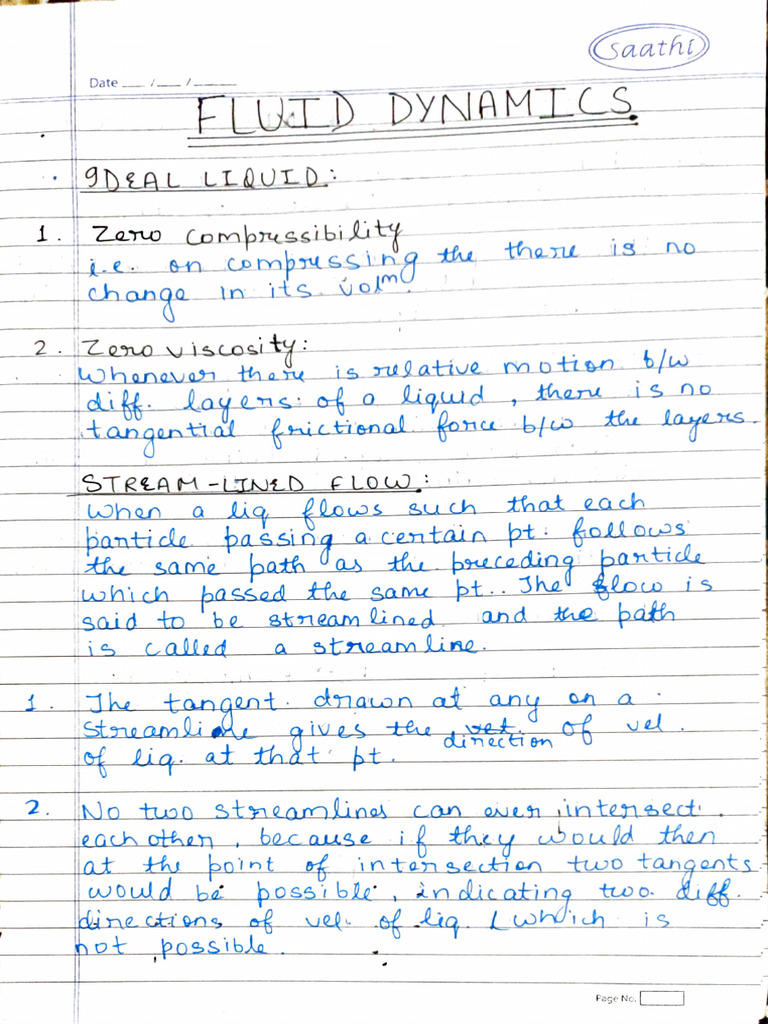 saathi
Date ___ / ___ / _____
FLUID DYNAMICS.
IDEAL LIQUID:
1. Zero compressibility
i.e. on compressing the there is no
change in its volm.
2. Zero viscosity:
Whenever there is relative motion b/w
diff. layers of a liquid, there is no
tangential frictional force b/w the layers.
STREAM-LINED FLOW:
When a liq flows such that each
particle passing a certain pt. follows
the same path as the preceding particle
which passed the same pt.. The flow is
said to be streamlined and the path
is called a streamline.
1. The tangent drawn at any on a
streamline gives the vel direction of vel.
of liq. at that pt.
2. No two streamlines can ever intersect
each other, because if they would then
at the point of intersection two tangents
would be possible, indicating two diff.
directions of vel. of liq. (which is
not possible.
Page No.